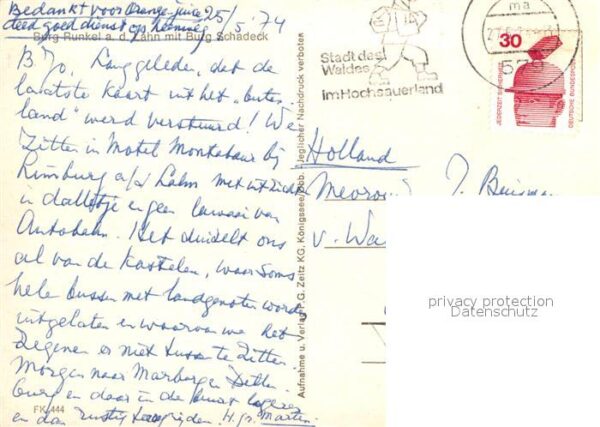 Bedankt voor Orange-juice 25/5.'74
deed goed dienst op heenreis
Burg Runkel a. d. Lahn mit Burg Schadeck
B. Lang geleden, dat de
laatste kaart uit het "buiten-
land" werd verstuurd! We
zitten in Motel Montabaur bij
Limburg a/d Lahn met uitzicht
in dalletje en geen lawaai van
Autobahn. Het duidelt ons
al van de kastelen, waar soms
hele bussen met landgenoten word
uitgelaten en waarvan we het
zegenen er niet tussen te zitten.
Morgen naar Marburg
burg en daar in de buurt
en dan rustig H. gr. Martin.
FK 444
Aufnahme u. Verlag P. G. Zeitz KG, Königssee/Obb. Jeglicher Nachdruck verboten
Stadt des
Waldes
im Hochsauerland
ma
57
30
JEDERZEIT SICHERHEIT
DEUTSCHE BUNDESPOST
Holland
J.
v. Wa
privacy protection
Datenschutz